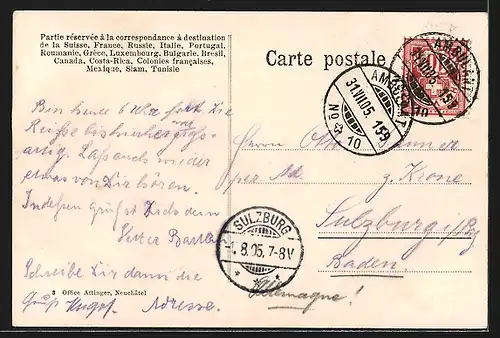 Partie réservée à la correspondance à destination
de la Suisse, France, Russie, Italie, Portugal,
Roumanie, Grèce, Luxembourg, Bulgarie, Brésil,
Canada, Costa-Rica, Colonies françaises,
Mexique, Siam, Tunisie
Carte postale
AMBULANT
31.VIII.05. 15
No 10
AMBULANT
31.VIII.05. 15
10
Bin heute 6 Uhr fort, die
Reise bis hierher war
artig. Lass auch wieder
etwas von Dir hören.
Indessen grüsst Dich dein
Schreibe Dir dann die
Adresse.
Herrn
z. Krone
Sulzburg
Baden.
Allemagne!
SULZBURG
1.8.05.7-8V
3 Office Attinger, Neuchâtel